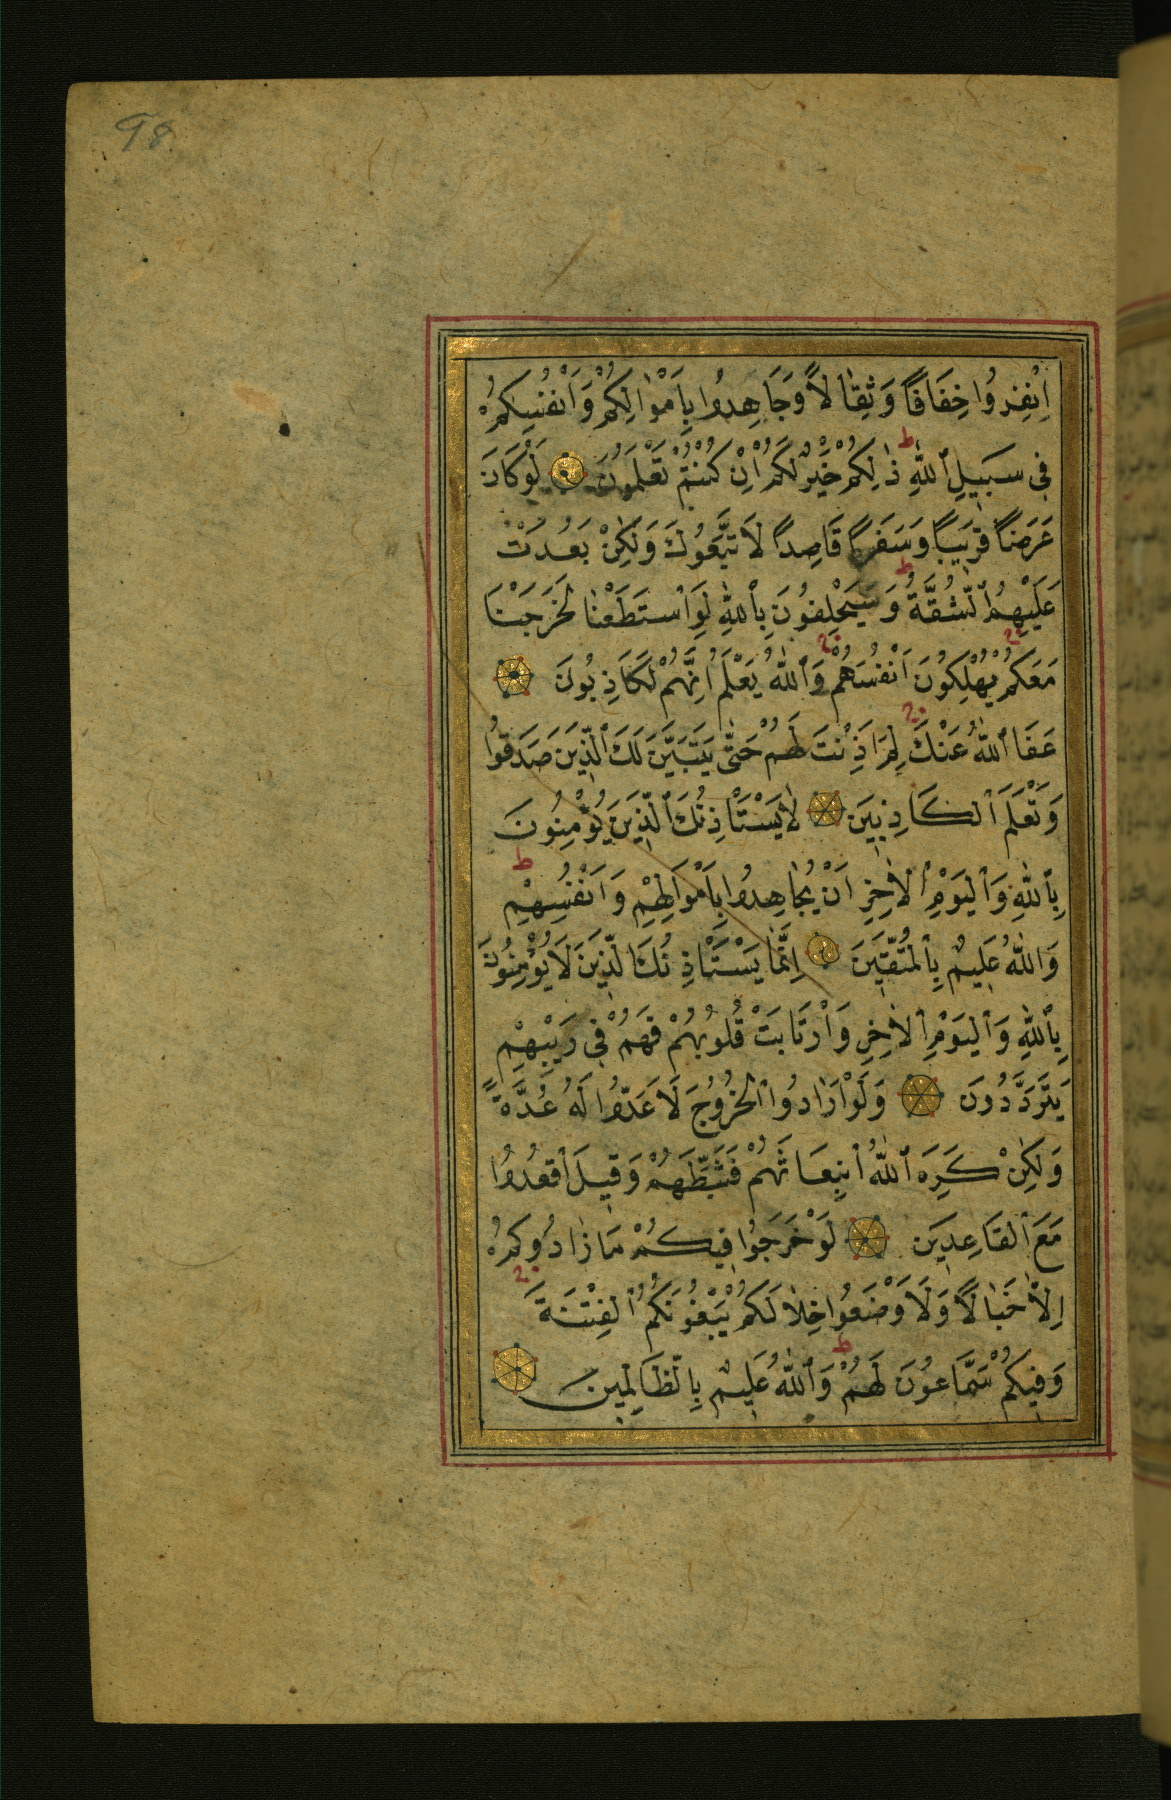 98
اِنْفِرُوا خِفَافًا وَثِقَالًا وَجَاهِدُوا بِاَمْوَالِكُمْ وَاَنْفُسِكُمْ
فِى سَبِيلِ ٱللّٰهِ ط ذٰلِكُمْ خَيْرٌ لَكُمْ اِنْ كُنْتُمْ تَعْلَمُونَ لَوْ كَانَ
عَرَضًا قَرِيبًا وَسَفَرًا قَاصِدًا لَاتَّبَعُوكَ وَلٰكِنْ بَعُدَتْ
عَلَيْهِمُ ٱلشُّقَّةُ ط وَسَيَحْلِفُونَ بِٱللّٰهِ لَوِ ٱسْتَطَعْنَا لَخَرَجْنَا
مَعَكُمْ يُهْلِكُونَ اَنْفُسَهُمْ وَٱللّٰهُ يَعْلَمُ اِنَّهُمْ لَكَاذِبُونَ
عَفَا ٱللّٰهُ عَنْكَ لِمَ اَذِنْتَ لَهُمْ حَتّٰى يَتَبَيَّنَ لَكَ ٱلَّذِينَ صَدَقُوا
وَتَعْلَمَ ٱلْكَاذِبِينَ لَا يَسْتَاْذِنُكَ ٱلَّذِينَ يُؤْمِنُونَ
بِٱللّٰهِ وَٱلْيَوْمِ ٱلْاٰخِرِ اَنْ يُجَاهِدُوا بِاَمْوَالِهِمْ وَاَنْفُسِهِمْ ط
وَاللّٰهُ عَلِيمٌ بِٱلْمُتَّقِينَ اِنَّمَا يَسْتَاْذِنُكَ ٱلَّذِينَ لَا يُؤْمِنُونَ
بِٱللّٰهِ وَٱلْيَوْمِ ٱلْاٰخِرِ وَٱرْتَابَتْ قُلُوبُهُمْ فَهُمْ فِى رَيْبِهِمْ
يَتَرَدَّدُونَ وَلَوْ اَرَادُوا ٱلْخُرُوجَ لَاَعَدُّوا لَهُ عُدَّةً
وَلٰكِنْ كَرِهَ ٱللّٰهُ ٱنْبِعَاثَهُمْ فَثَبَّطَهُمْ وَقِيلَ ٱقْعُدُوا
مَعَ ٱلْقَاعِدِينَ لَوْ خَرَجُوا فِيكُمْ مَا زَادُوكُمْ
اِلَّا خَبَالًا وَلَاَوْضَعُوا خِلَالَكُمْ يَبْغُونَكُمُ ٱلْفِتْنَةَ
وَفِيكُمْ سَمَّاعُونَ لَهُمْ ط وَٱللّٰهُ عَلِيمٌ بِالظَّالِمِينَ